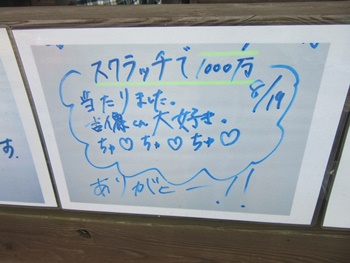 スクラッチで1000万
8/19
当たりました。
大好き。
ちゅ♡ちゅ♡ちゅ♡
ありがとー!!
す。